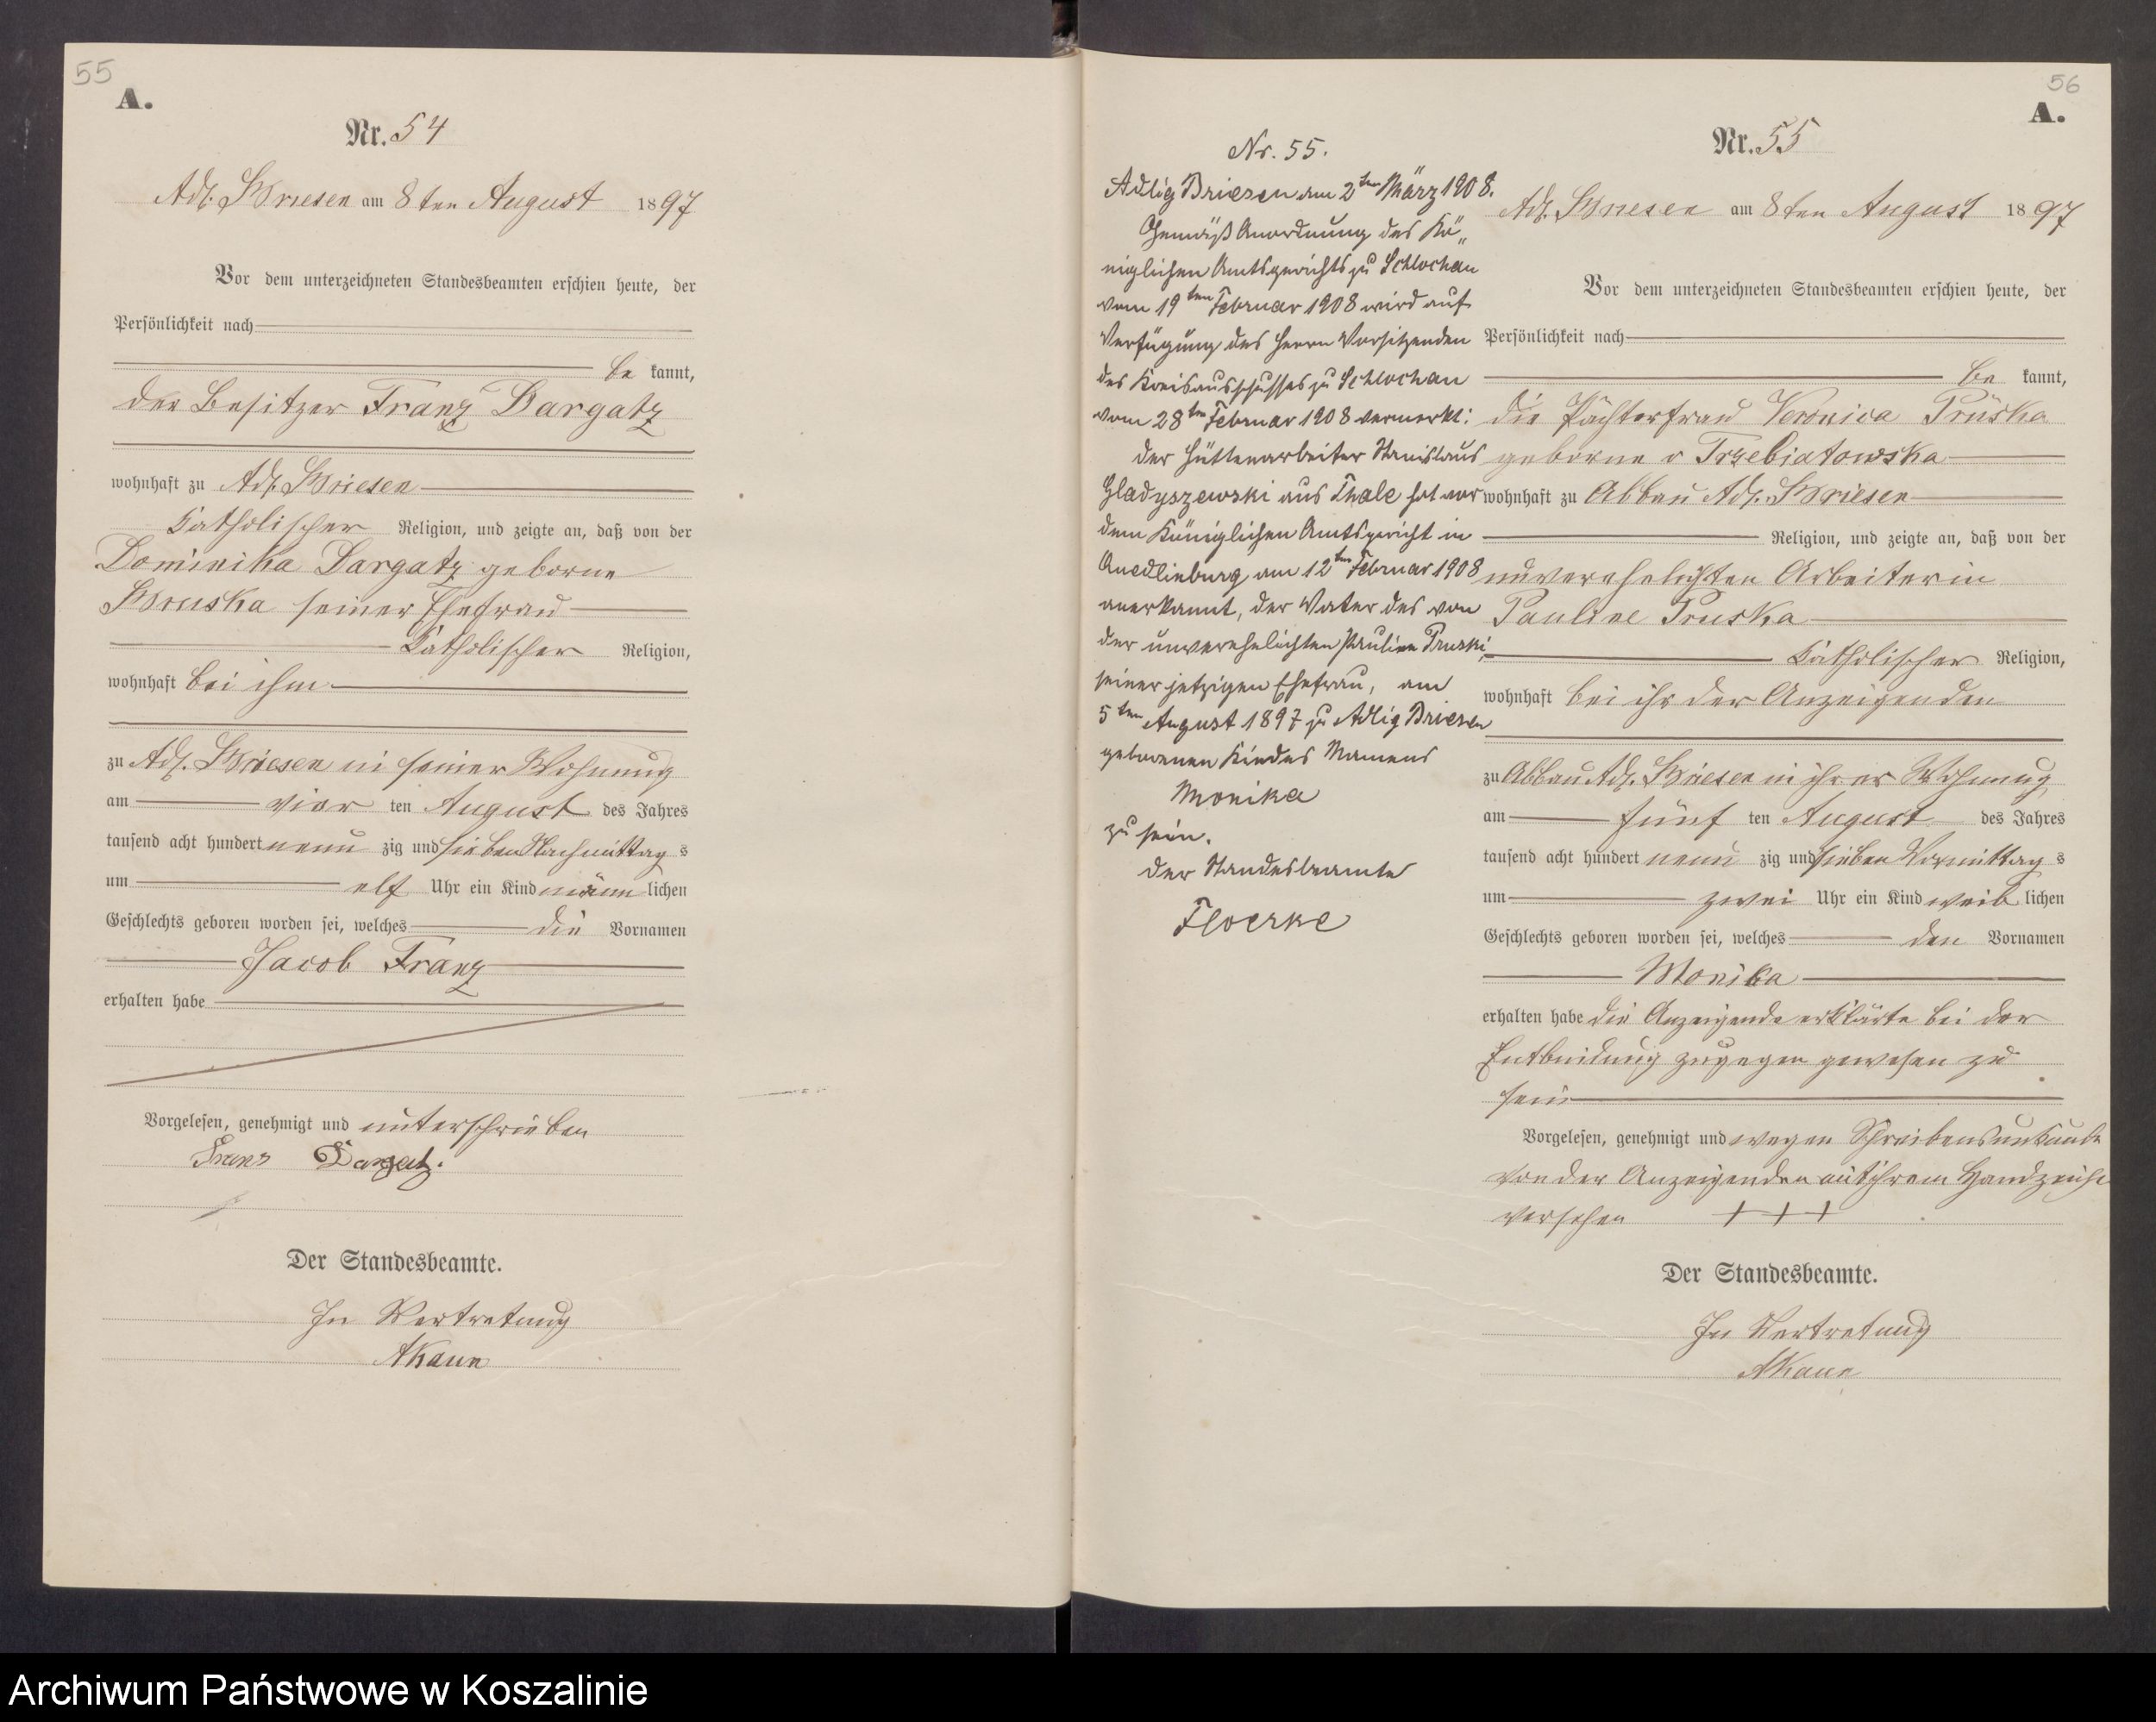 55
A.
Nr. 54
Adl. Briesen am 8ten August 1897
Vor dem unterzeichneten Standesbeamten erschien heute, der
Persönlichkeit nach
be kannt,
der Besitzer Franz Dargatz
wohnhaft zu Adl. Briesen
Katholischer Religion, und zeigte an, daß von der
Dominika Dargatz geborne
Bruska seiner Ehefrau
Katholischer Religion,
wohnhaft bei ihm
zu Adl. Briesen in seiner Wohnung
am vier ten August des Jahres
tausend acht hundert neun zig und sieben Nachmittag s
um elf Uhr ein Kind männ lichen
Geschlechts geboren worden sei, welches die Vornamen
Jacob Franz
erhalten habe
Vorgelesen, genehmigt und unterschrieben
Franz Dargatz.
Der Standesbeamte.
In Vertretung
AKaun
Nr. 55.
Adlig Briesen am 2ten März 1908.
Gemäß Anordnung des Kö„
niglichen Amtsgerichts zu Schlochau
vom 19ten Februar 1908 wird auf
Verfügung des Herrn Vorsitzenden
des Kreisausschusses zu Schlochau
vom 28ten Februar 1908 vermerkt:
Der Hüttenarbeiter Stanislaus
Gladyszewski aus Thale hat vor
dem Königlichen Amtsgericht in
Quedlinburg am 12ten Februar 1908
anerkannt, der Vater des von
der unverehelichten Pauline Pruski,
seiner jetzigen Ehefrau, am
5ten August 1897 zu Adlig Briesen
geborenen Kindes Namens
Monika
zu sein.
Der Standesbeamte
Floerke
56
A.
Nr. 55
Adl. Briesen am 8ten August 1897
Vor dem unterzeichneten Standesbeamten erschien heute, der
Persönlichkeit nach
be kannt,
die Pächterfrau Veronica Pruska
geborne v Trzebiatowska
wohnhaft zu Abbau Adl. Briesen
Religion, und zeigte an, daß von der
unverehelichten Arbeiterin
Pauline Pruska
Katholischer Religion,
wohnhaft bei ihr der Anzeigenden
zu Abbau Adl. Briesen in ihrer Wohnung
am fünf ten August des Jahres
tausend acht hundert neun zig und sieben Vormittag s
um zwei Uhr ein Kind weib lichen
Geschlechts geboren worden sei, welches den Vornamen
Monika
erhalten habe die Anzeigende erklärte bei der
Entbindung zugegen gewesen zu
sein
Vorgelesen, genehmigt und wegen Schreibensunkunde
von der Anzeigenden mit ihrem Handzeichen
versehen +++
Der Standesbeamte.
In Vertretung
AKaun
Archiwum Państwowe w Koszalinie